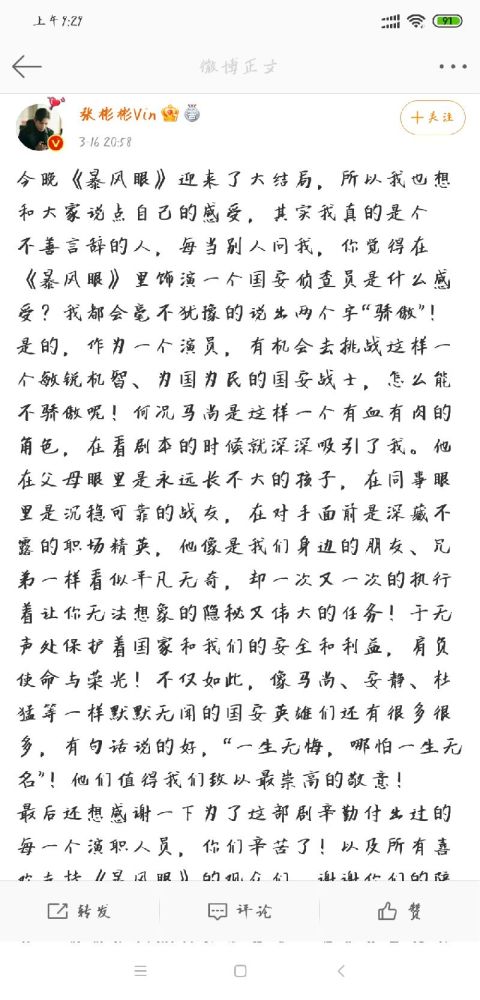 上午9:29
91
微博正文
张彬彬Vin
3-16 20:58
+关注
今晚《暴风眼》迎来了大结局，所以我也想
和大家说点自己的感受，其实我真的是个
不善言辞的人，每当别人问我，你觉得在
《暴风眼》里饰演一个国安侦查员是什么感
受？我都会毫不犹豫的说出两个字“骄傲”！
是的，作为一个演员，有机会去挑战这样一
个敏锐机智、为国为民的国安战士，怎么能
不骄傲呢！何况马尚是这样一个有血有肉的
角色，在看剧本的时候就深深吸引了我。他
在父母眼里是永远长不大的孩子，在同事眼
里是沉稳可靠的战友，在对手面前是深藏不
露的职场精英，他像是我们身边的朋友、兄
弟一样看似平凡无奇，却一次又一次的执行
着让你无法想象的隐秘又伟大的任务！于无
声处保护着国家和我们的安全和利益，肩负
使命与荣光！不仅如此，像马尚、安静、杜
猛等一样默默无闻的国安英雄们还有很多很
多，有句话说的好，“一生无悔，哪怕一生无
名”！他们值得我们致以最崇高的敬意！
最后还想感谢一下为了这部剧辛勤付出过的
每一个演职人员，你们辛苦了！以及所有喜
欢支持《暴风眼》的观众们，谢谢你们的陪
转发
评论
赞